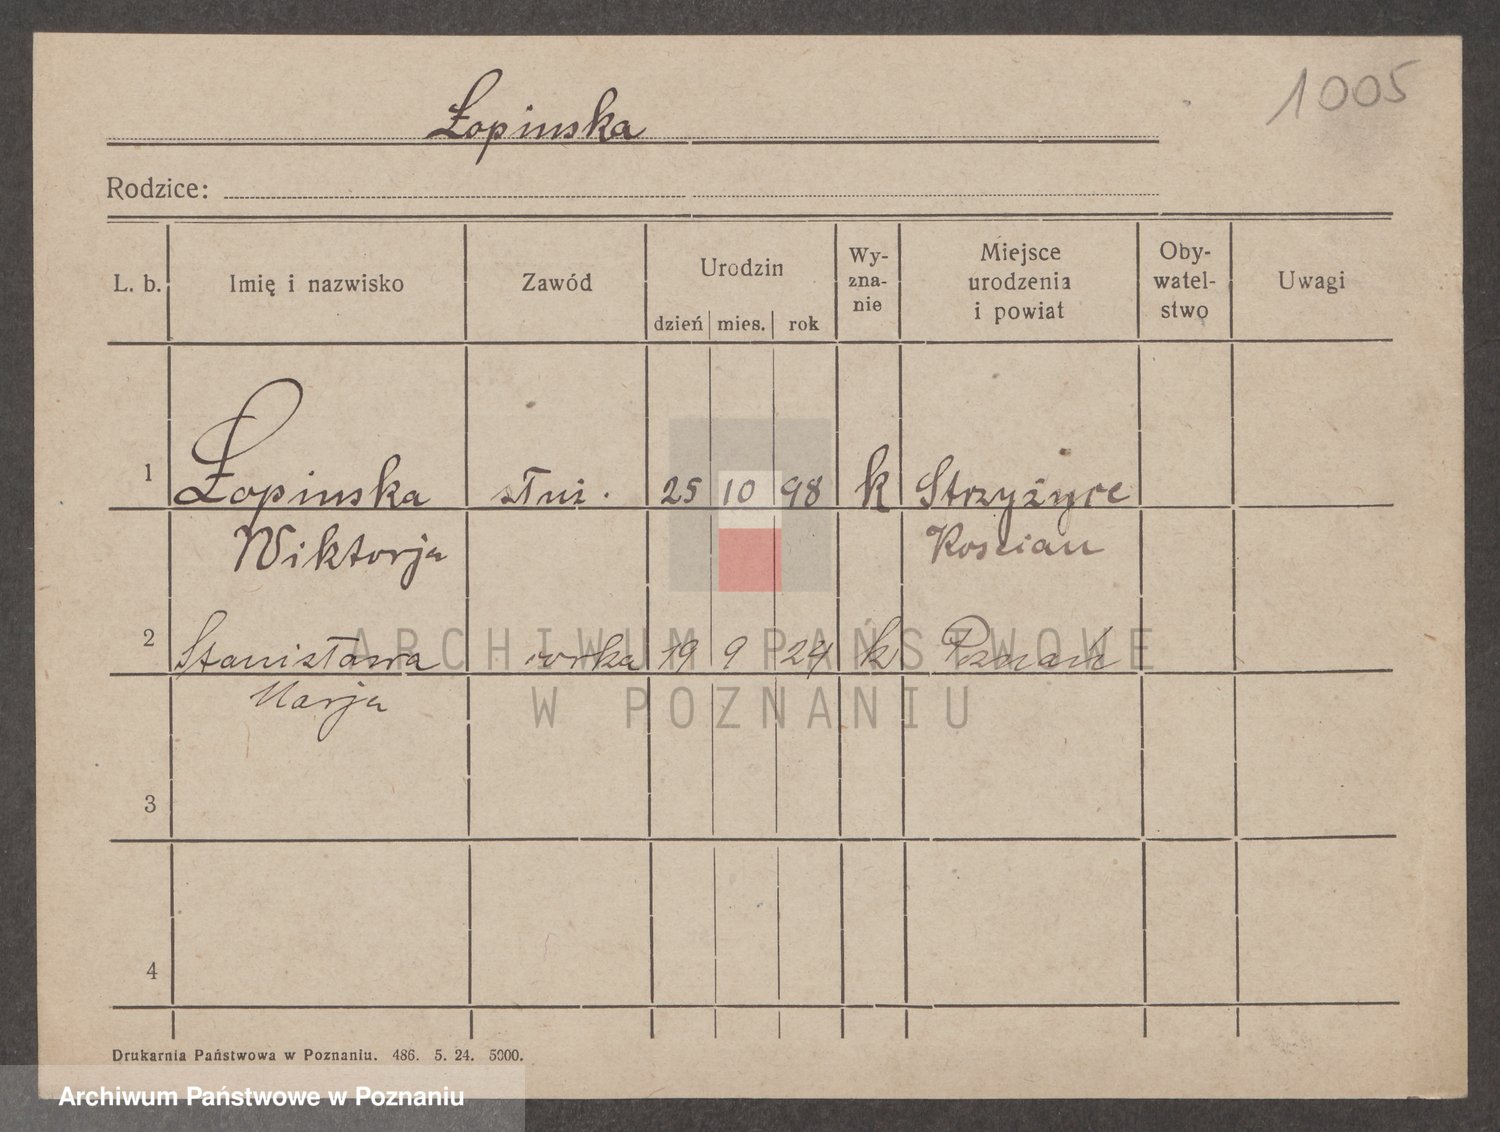 1005
Łopinska
Rodzice:
L. b. Imię i nazwisko Zawód Urodzin dzień mies. rok Wy-zna-nie Miejsce urodzenia i powiat Oby-watel-stwo Uwagi
1 Łopinska służ. 25 10 98 k Strzyżyce
Wiktorja Kościan
2 Stanisława córka 19 9 24 k Poznań
Marja
3
4
Drukarnia Państwowa w Poznaniu. 486. 5. 24. 5000.
ARCHIWUM PAŃSTWOWE
W POZNANIU
Archiwum Państwowe w Poznaniu